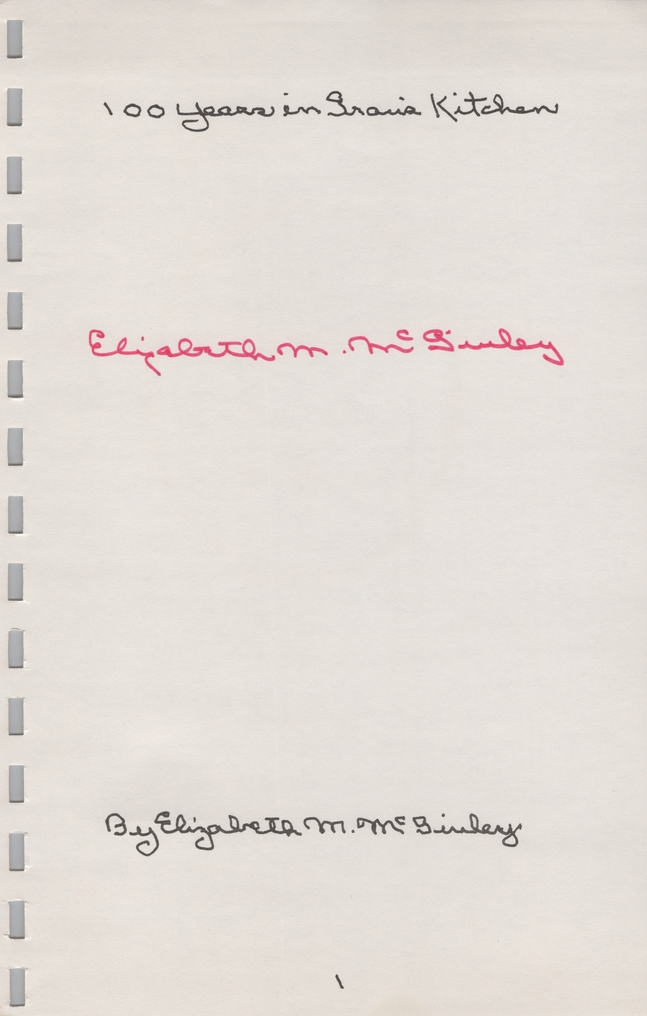 100 years in Gravie Kitchen
Elizabeth M. McGinley
By Elizabeth M. McGinley
1